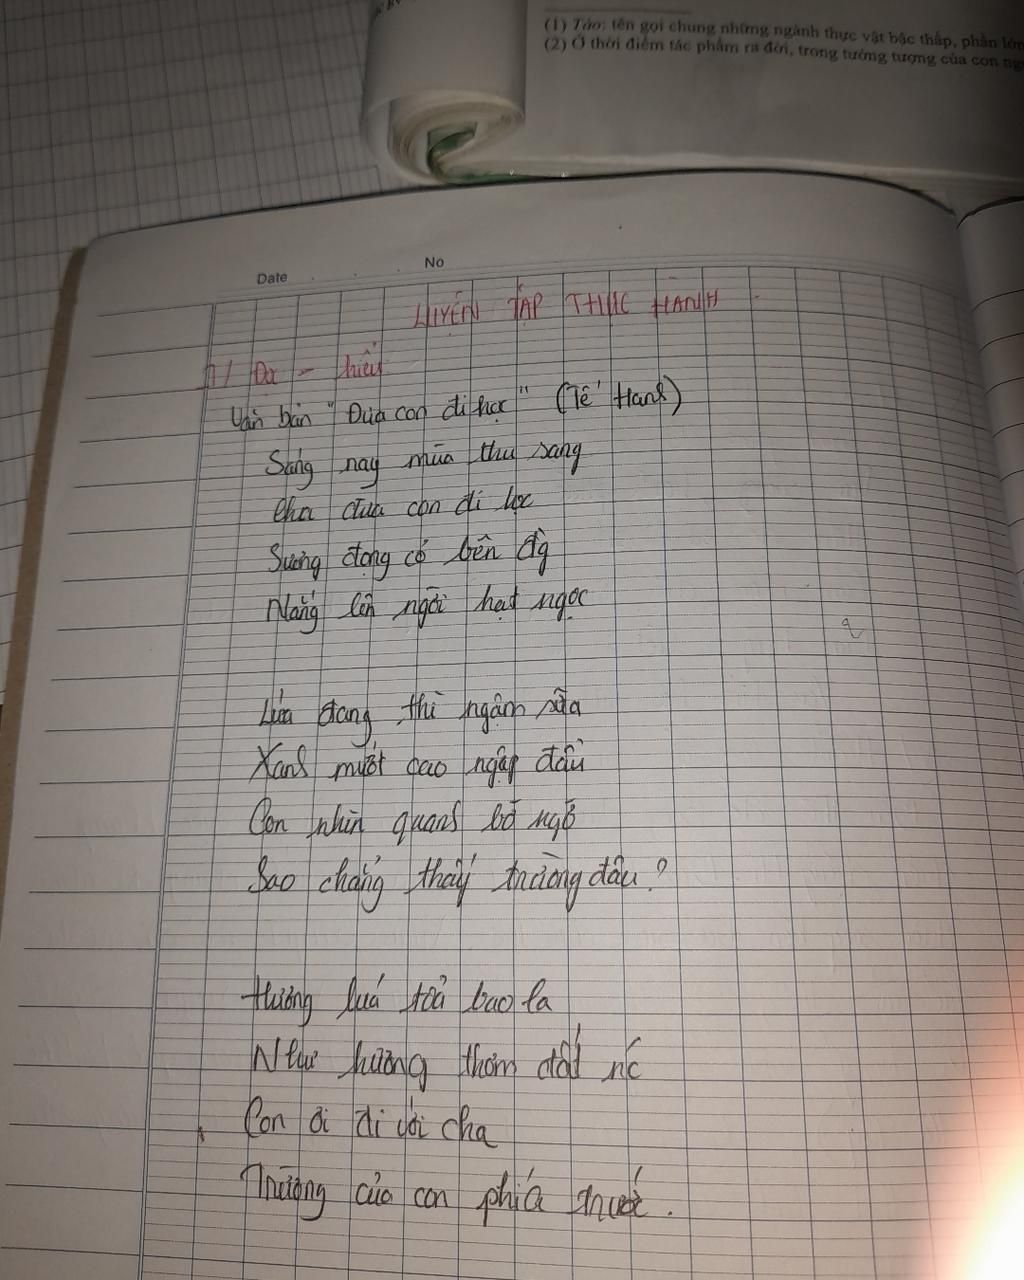 (1) Tảo: tên gọi chung những ngành thực vật bậc thấp, phần lớn
(2) Ở thời điểm tác phẩm ra đời, trong tưởng tượng của con
Date No
LUYỆN TẬP THỰC HÀNH
I/ Đọc - hiểu
Văn bản "Đưa con đi học" (Tế Hanh)
Sáng nay mùa thu sang
Cha đưa con đi học
Sương đọng cỏ bên đg
Nắng lên ngời hạt ngọc
Lúa đang thì ngậm sữa
Xanh mướt cao ngập đầu
Con nhìn quanh bỡ ngỡ
Sao chẳng thấy trường đâu?
Hương lúa toả bao la
Như hương thơm đất nc
Con ơi đi với cha
Trường của con phía trước.